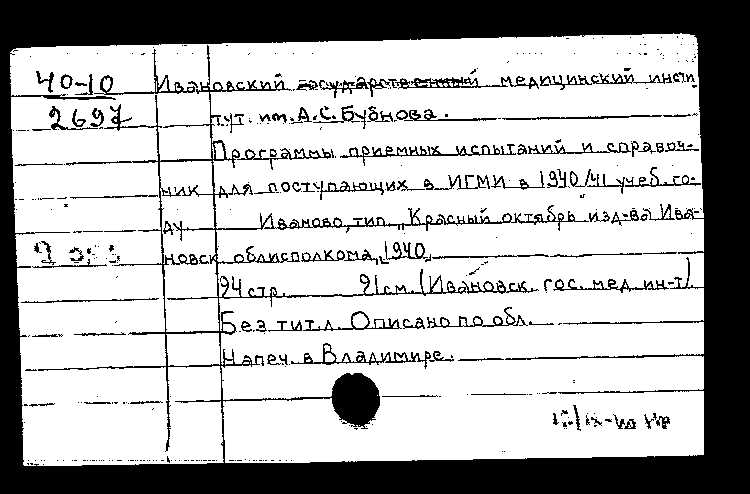 40-10
2697
Ивановский государственный медицинский инсти
тут. им. А.С. Бубнова.
Программы приемных испытаний и справоч-
ник для поступающих в ИГМИ в 1940/41 учеб. го-
ду. Иваново, тип. „Красный октябрь изд-ва Ива-
новск облисполкома„, 1940.
24 стр. 21 см. (Ивановск. гос. мед ин-т)
Без тит. л. Описано по обл.
Напеч. в Владимире.